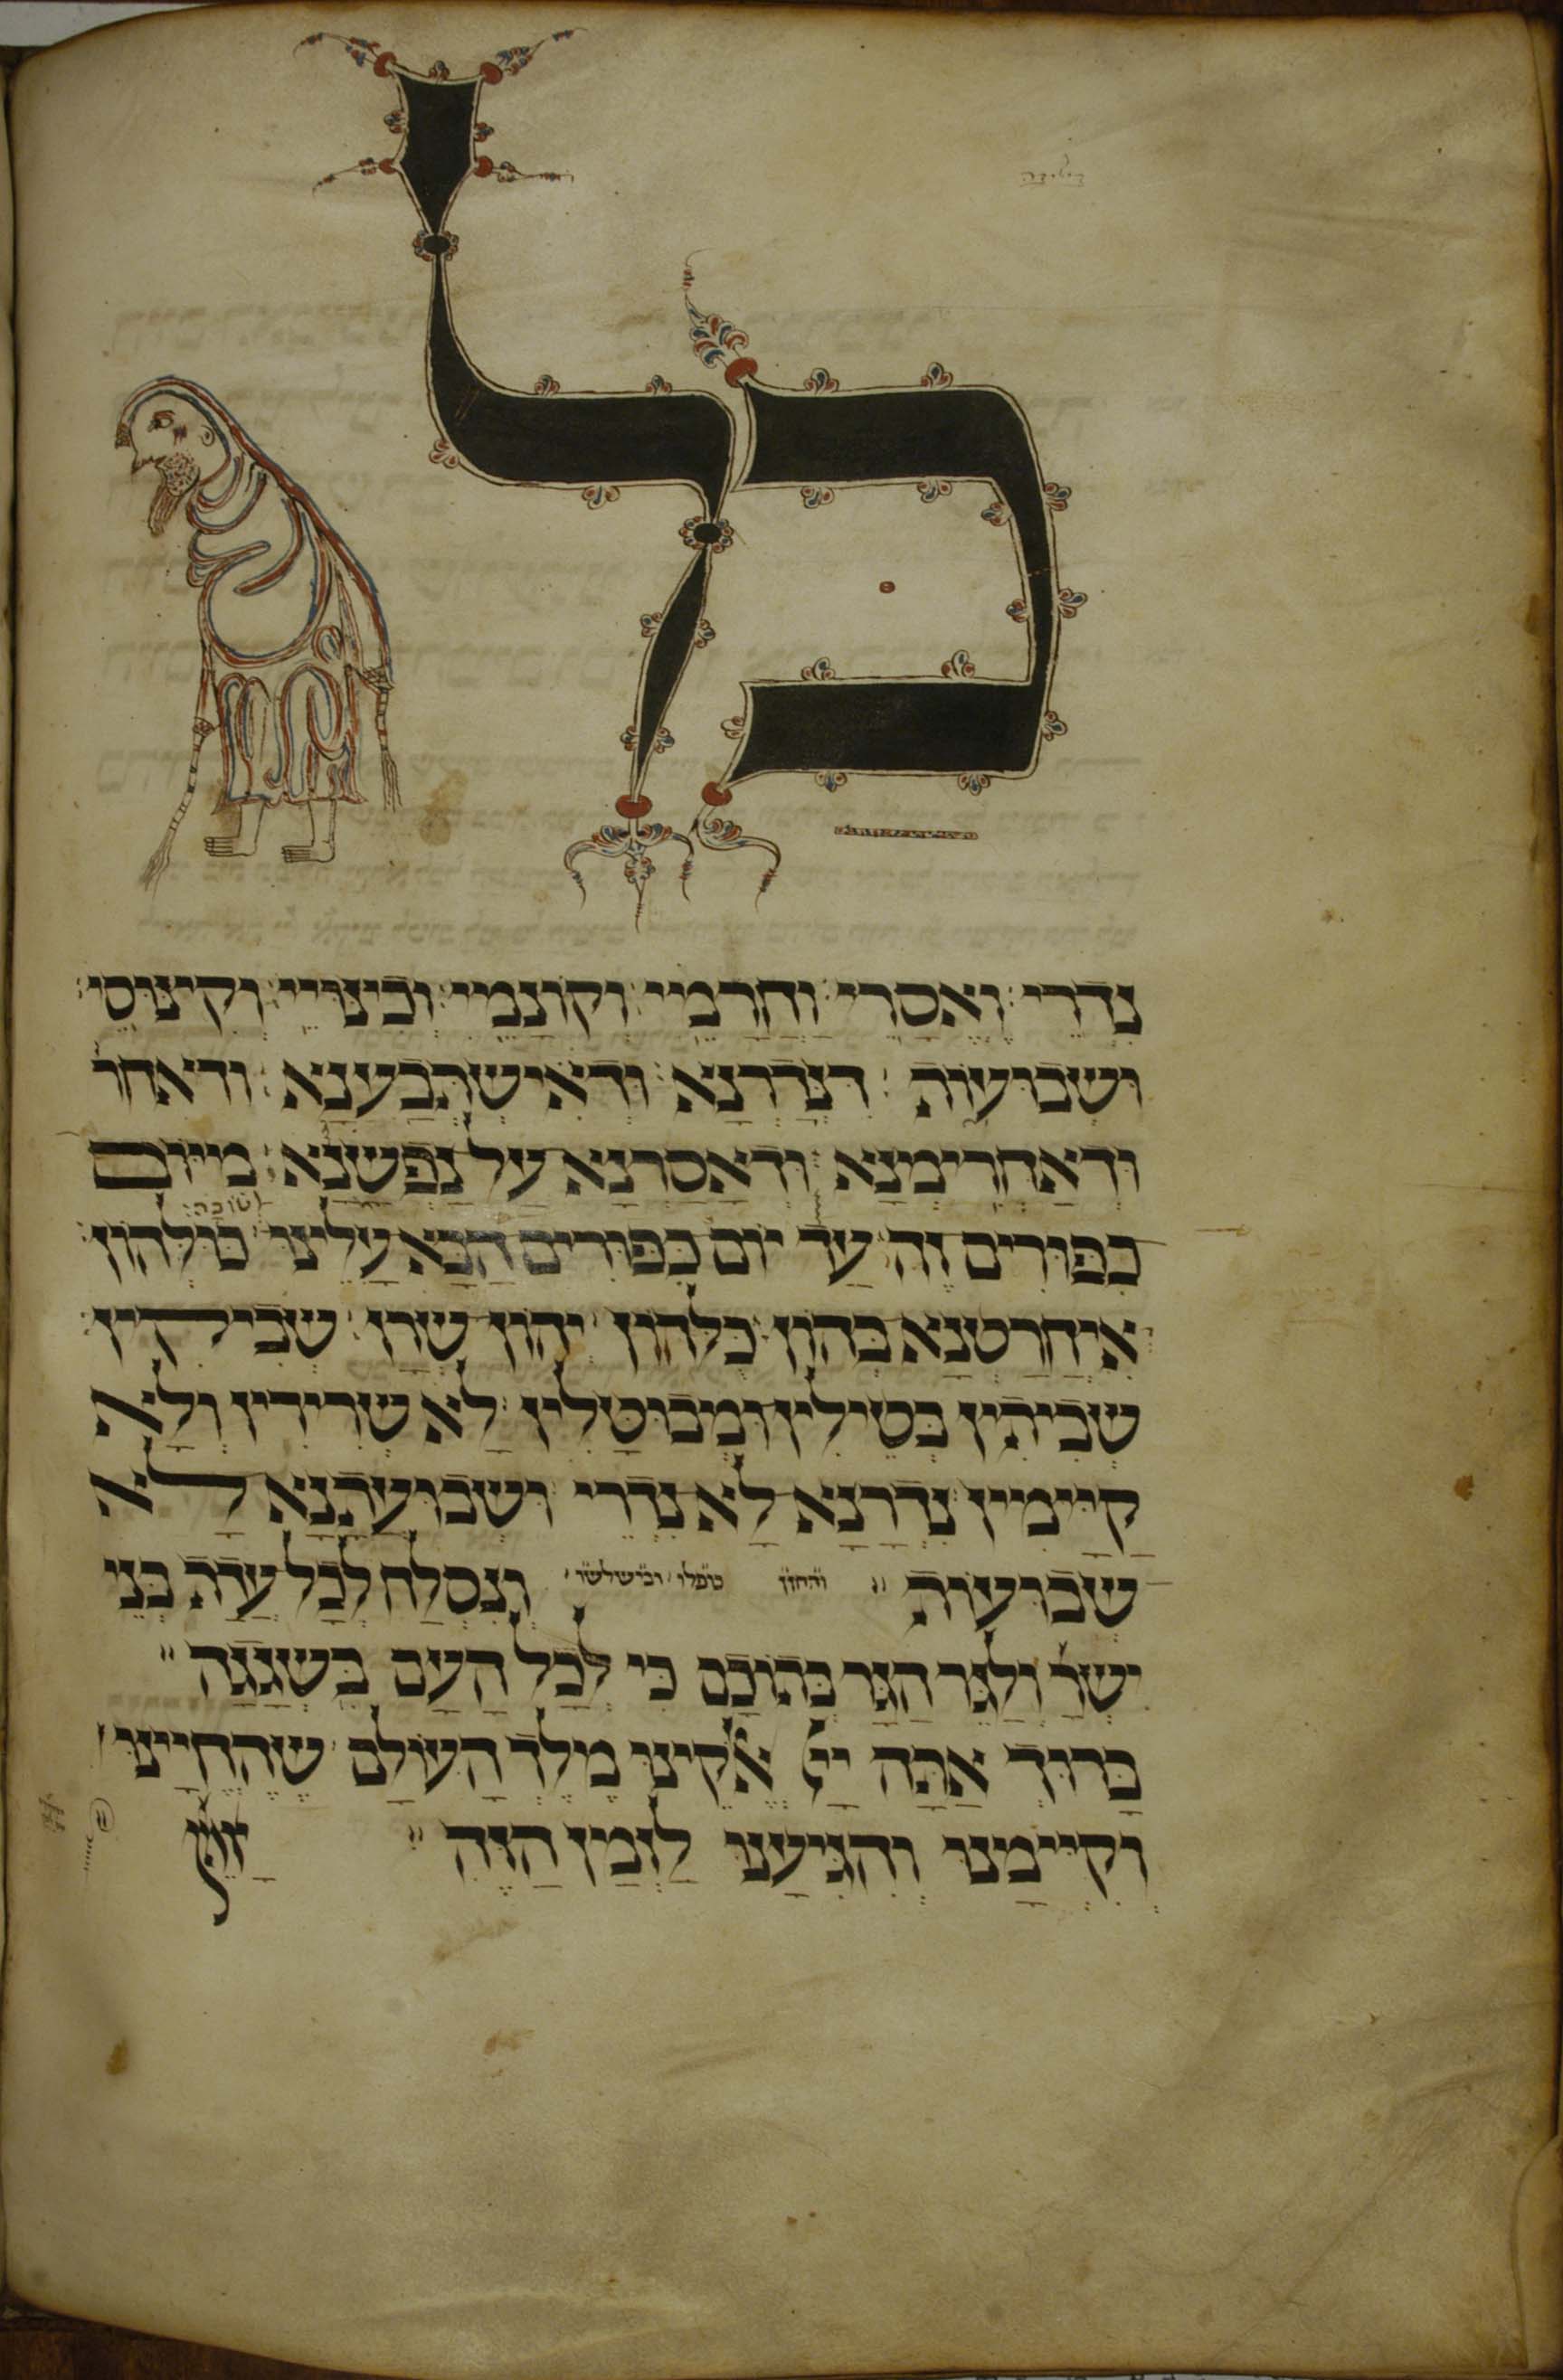 כָּל
נִדְרֵי · וֶאֱסָרֵי · וַחֲרָמֵי · וְקוֹנָמֵי · וְכִינּוּיֵי · וְקִינּוּסֵי :
וּשְׁבוּעוֹת · דִּנְדַרְנָא · וּדְאִישְׁתְּבַעְנָא · ודאחר
וּדְאַחֲרִימְנָא · וּדְאָסַרְנָא עַל נַפְשָׁנָא · מִיּוֹם
כִּפּוּרִים זֶה · עַד יוֹם כִּפּוּרִים הַבָּא עָלֵינוּ · כּוּלְּהוֹן :
לטובה :
אִיחֲרַטְנָא בְהוֹן · כֻּלְּהוֹן יְהוֹן שְׁרָן · שְׁבִיקִין :
שְׁבִיתִין בְּטֵילִין וּמְבוּטָּלִין · לָא שְׁרִירִין וְלָא
קַיָּימִין · נִדְרָנָא לָא נִדְרֵי · וּשְׁבוּעָתָנָא לָא
שְׁבוּעוֹת ״ וְנִסְלַח לְכָל עֲדַת בְּנֵי
יִשְׂרָ׳ וְלַגֵּר הַגָּר בְּתוֹכָם כִּי לְכָל הָעָם בִּשְׁגָגָה ״
בָּרוּךְ אַתָּה יְיָ אֱלֹקֵינוּ מֶלֶךְ הָעוֹלָם · שֶׁהֶחֱיָינוּ ·
וְקִיְּימָנוּ וְהִגִּיעָנוּ לַזְּמַן הַזֶּה ״